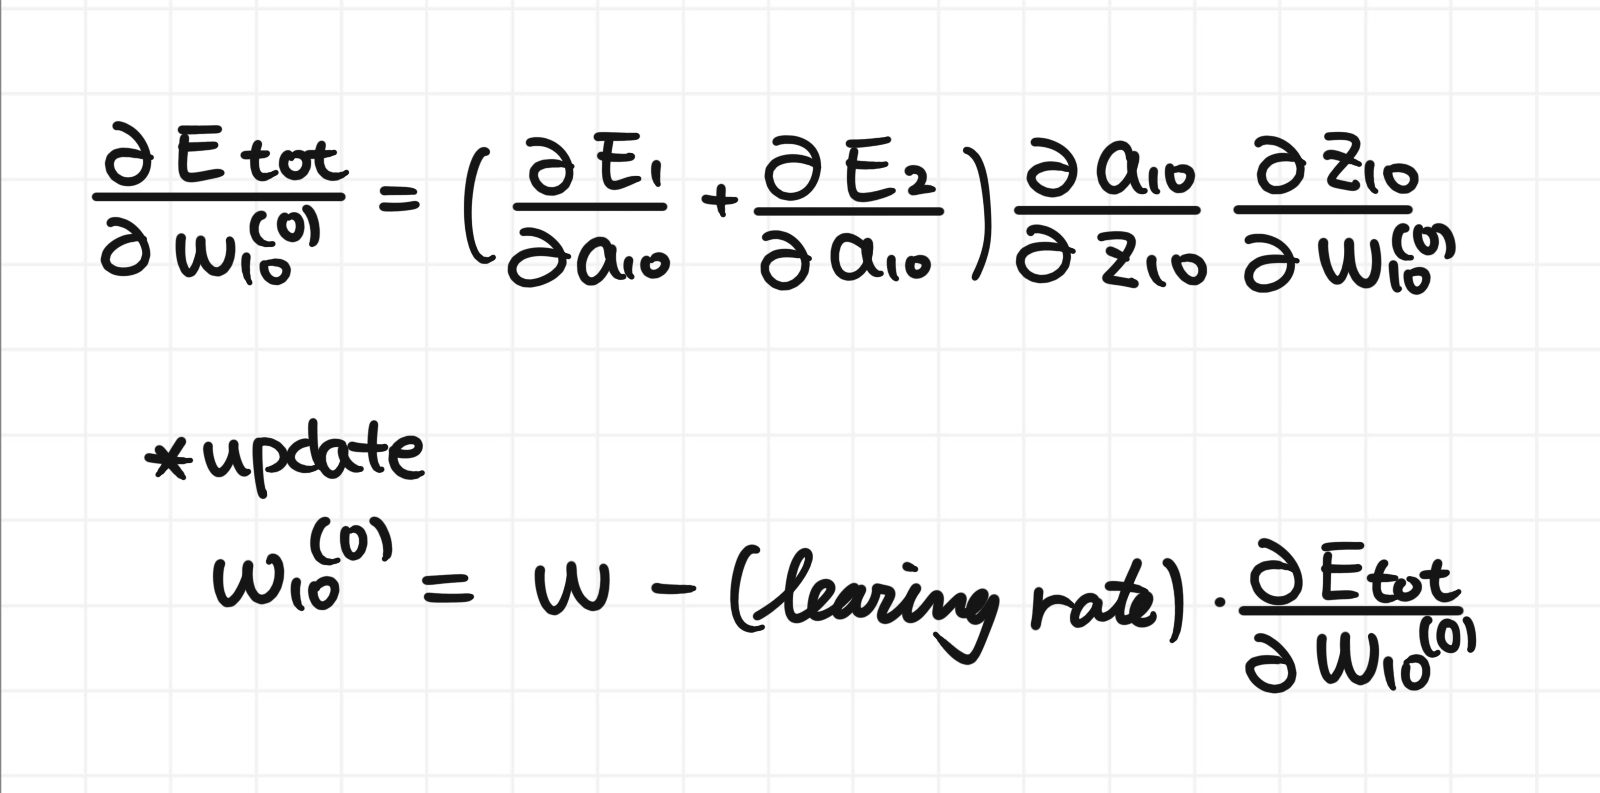 ∂E tot / ∂w₁₀⁽⁰⁾ = (∂E₁ / ∂a₁₀ + ∂E₂ / ∂a₁₀) ∂a₁₀ / ∂z₁₀ ∂z₁₀ / ∂w₁₀⁽⁰⁾
*update
w₁₀⁽⁰⁾ = w - (learing rate) · ∂Etot / ∂w₁₀⁽⁰⁾